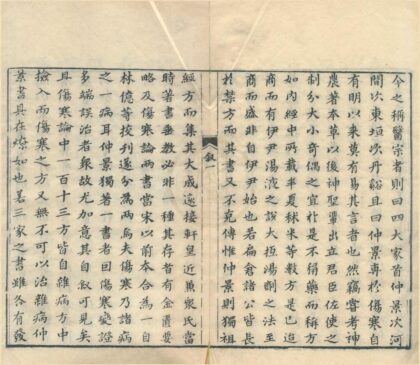 今之稱醫宗者則曰四大家首仲景次河
間次東垣次丹谿且曰仲景專於傷寒自
有明以來莫有易其言者也然竊嘗考神
農著本草以後神聖輩出立君臣佐使之
制分大小奇偶之宜於是不稱藥而稱方
如內經中所載半夏秫米等數方是已迨
商而有伊尹湯液之說大抵湯劑之法至
商而盛非自伊尹始也若扁倉諸公皆長
於禁方而其書又不克傳惟仲景則獨祖
敘一
經方而集其大成遠接軒皇近兼衆氏當
時著書垂教必非一種其存者有金匱要
略及傷寒論兩書當宋以前本合為一自
林億等挍刊遂分為兩焉夫傷寒乃諸病
之一病耳仲景獨著一書者因傷寒變證
多端誤治者衆故尤加意其自敘可見矣
且傷寒論中一百十三方皆自雜病方中
撿入而傷寒之方又無不可以治雜病仲
景書具在燎如也若三家之書雖各有發